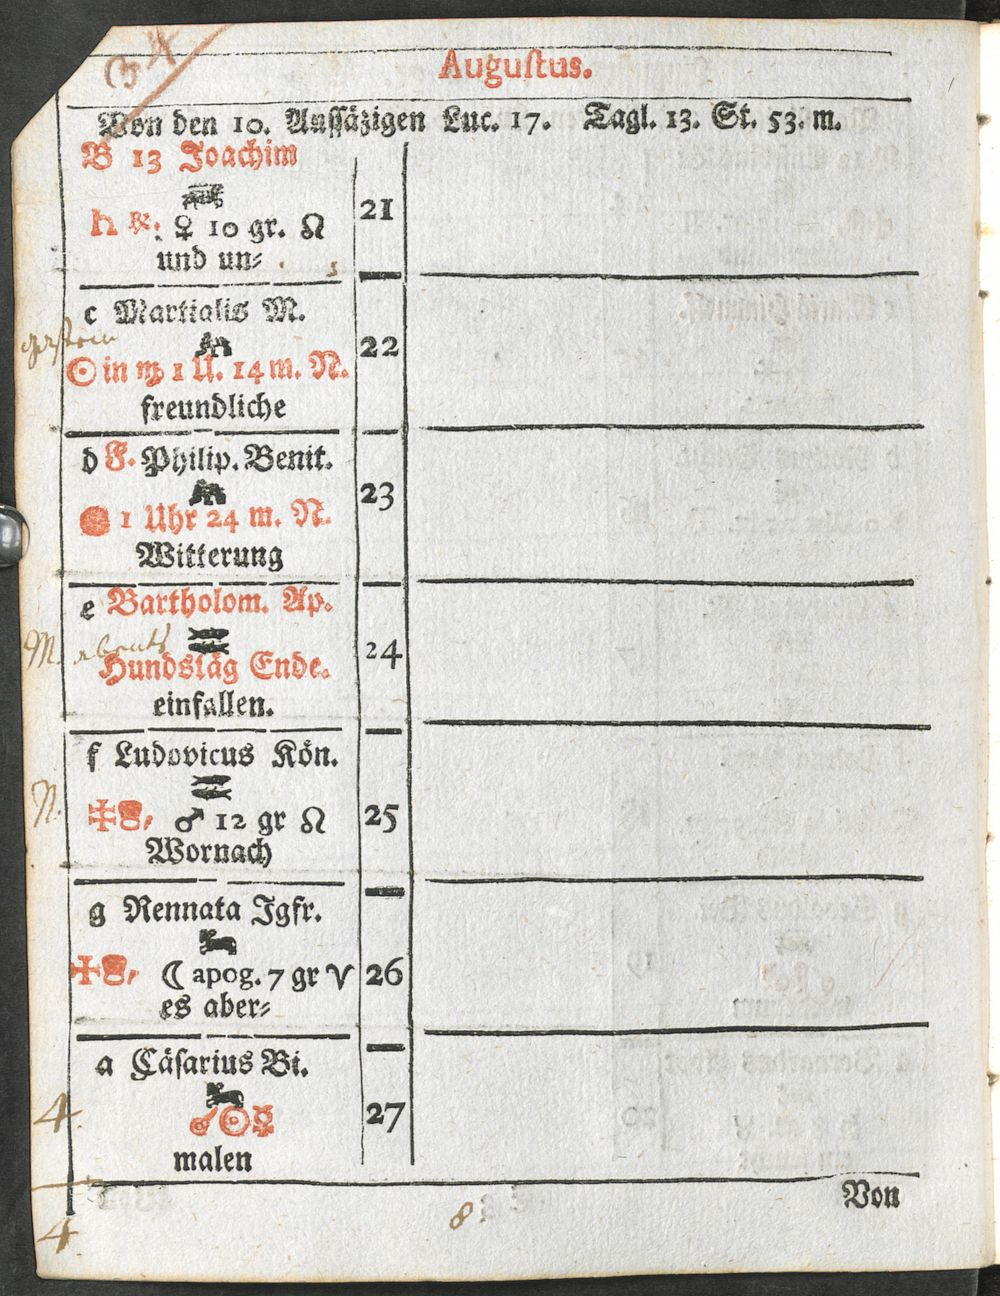 34
Auguſtus.
Von den 10. Auſſäzigen Luc. 17. Tagl. 13. St. 53. m.
B 13 Joachim
21
♄ ℞. ♀ 10 gr. ☊
und un⸗
c Martialis M.
22
☉ in ♍ 1 U. 14 m. N.
freundliche
d F. Philip. Benit.
23
1 Uhr 24 m. N.
Witterung
e Bartholom. Ap.
M.
24
Hundstäg Ende.
einfallen.
f Ludovicus Kön.
N.
♂ 12 gr ☊
25
Wornach
g Rennata Jgfr.
☾ apog. 7 gr ♈
26
es aber⸗
a Cäſarius Bi.
4.
☌ ☉ ☿
27
malen
Von
8.
4.